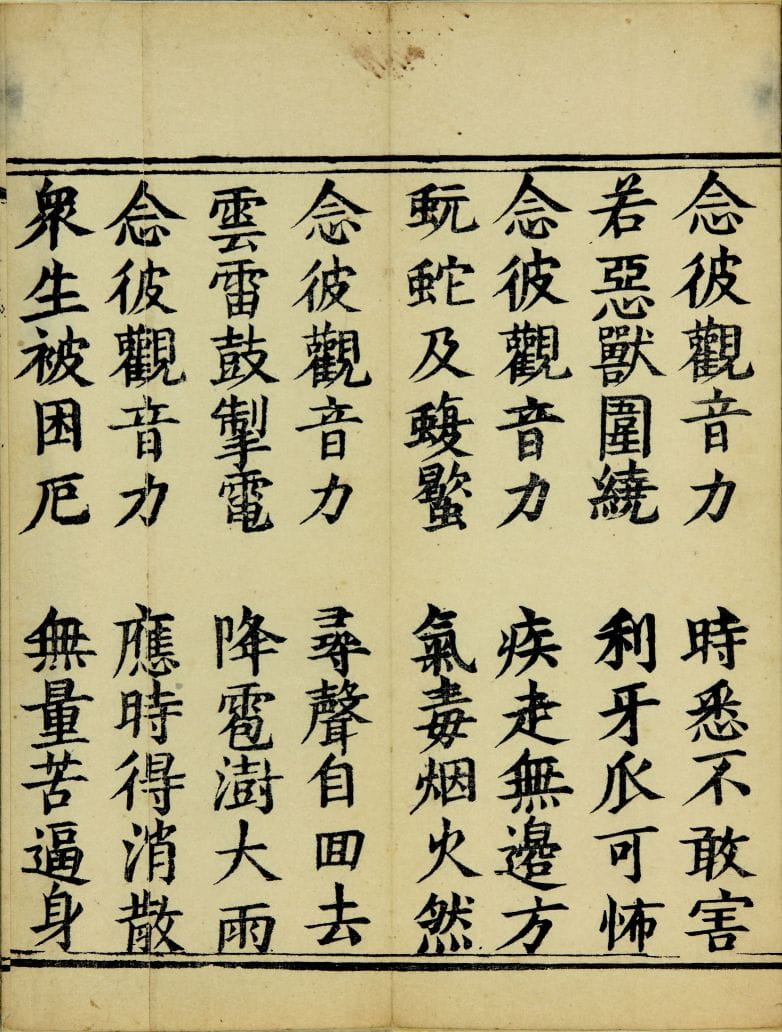 念彼觀音力　時悉不敢害
若惡獸圍繞　利牙爪可怖
念彼觀音力　疾走無邊方
蚖蛇及蝮蠍　氣毒烟火然
念彼觀音力　尋聲自回去
雲雷鼓掣電　降雹澍大雨
念彼觀音力　應時得消散
衆生被困厄　無量苦逼身